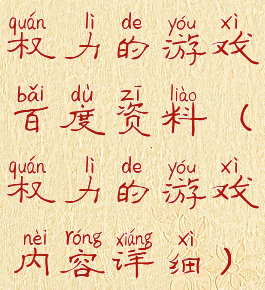 quán lì de yóu xì
权力的游戏
bǎi dù zī liào
百度资料（
quán lì de yóu xì
权力的游戏
nèi róng xiáng xì
内容详细）